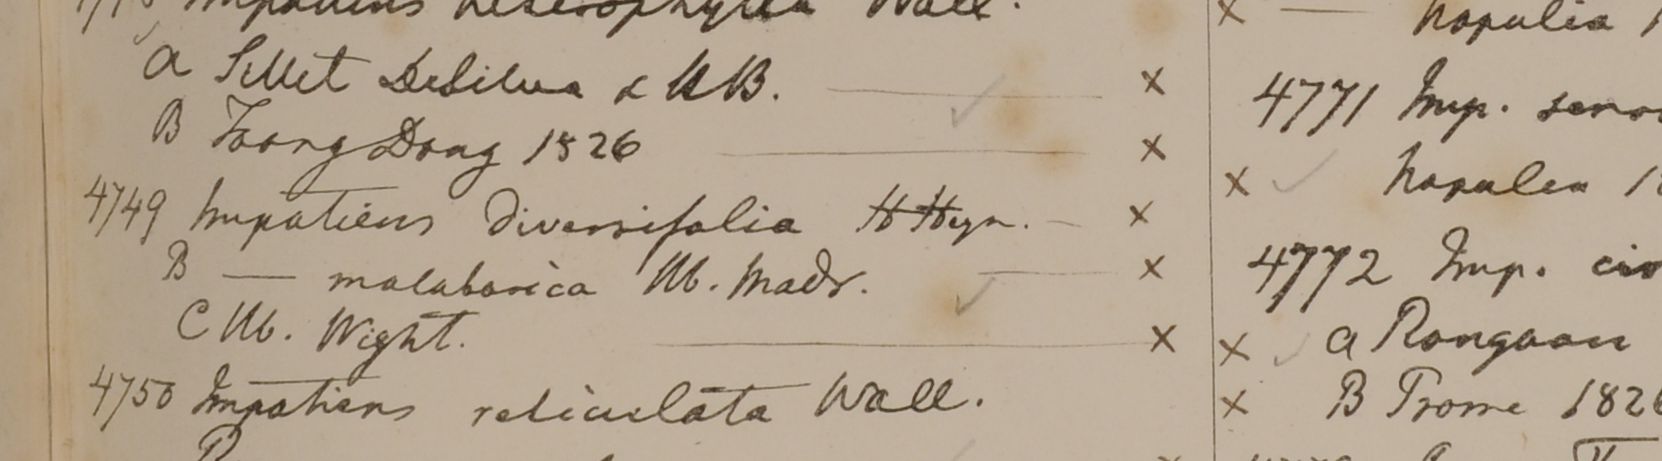 Impatiens heterophylla Wall.
a Sillet DeSilva & HB.
B Toong Dong 1826
4749 Impatiens diversifolia H Heyn.
B — malabarica Hb. Madr.
C Hb. Wight.
4750 Impatiens reticulata Wall.
x — Napalia
4771 Imp.
x Napalea
4772 Imp.
x a Rongoon
x B Prome 1826